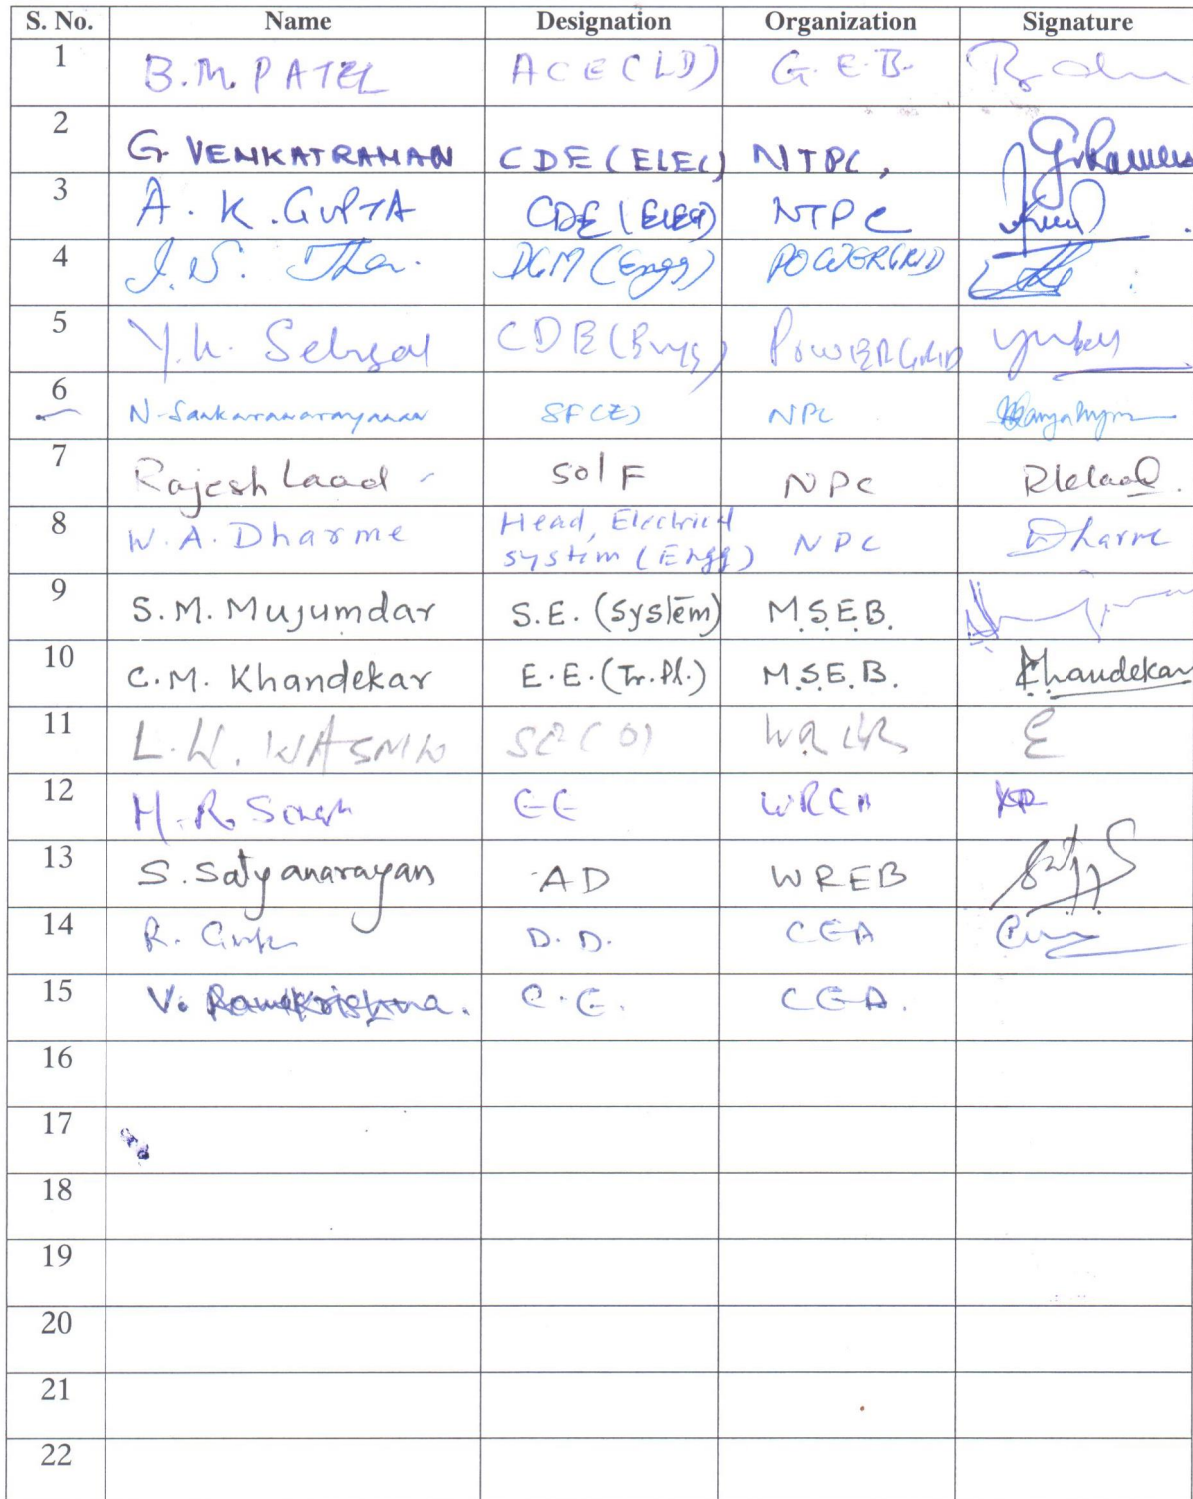 S. No. Name Designation Organization Signature
1 B.M. PATEL ACE (LD) G.E.B.
2 G. VENKATRAMAN CDE (ELEC) NTPC,
3 A. K. GUPTA CDE (ELEC) NTPC
4 I.S. Jha. DGM (Engg) POWERGRID
5 Y.K. Sehgal CDE (Engg) POWERGRID
6 N. Sankaranarayanan NPC
7 Rajesh Laad NPC
8 W.A. Dharme Head, Electrical NPC Dharme
system (Engg)
9 S.M. Mujumdar S.E. (System) M.S.E.B.
10 C.M. Khandekar E.E. (Tr. Pl.) M.S.E.B. Khandekar
11 L.K.
12 M.R. Singh EE WREB
13 S. Satyanarayan AD WREB
14 R. D.D. CEA
15 V. Ramakrishna. C.E. CEA.
16
17
18
19
20
21
22